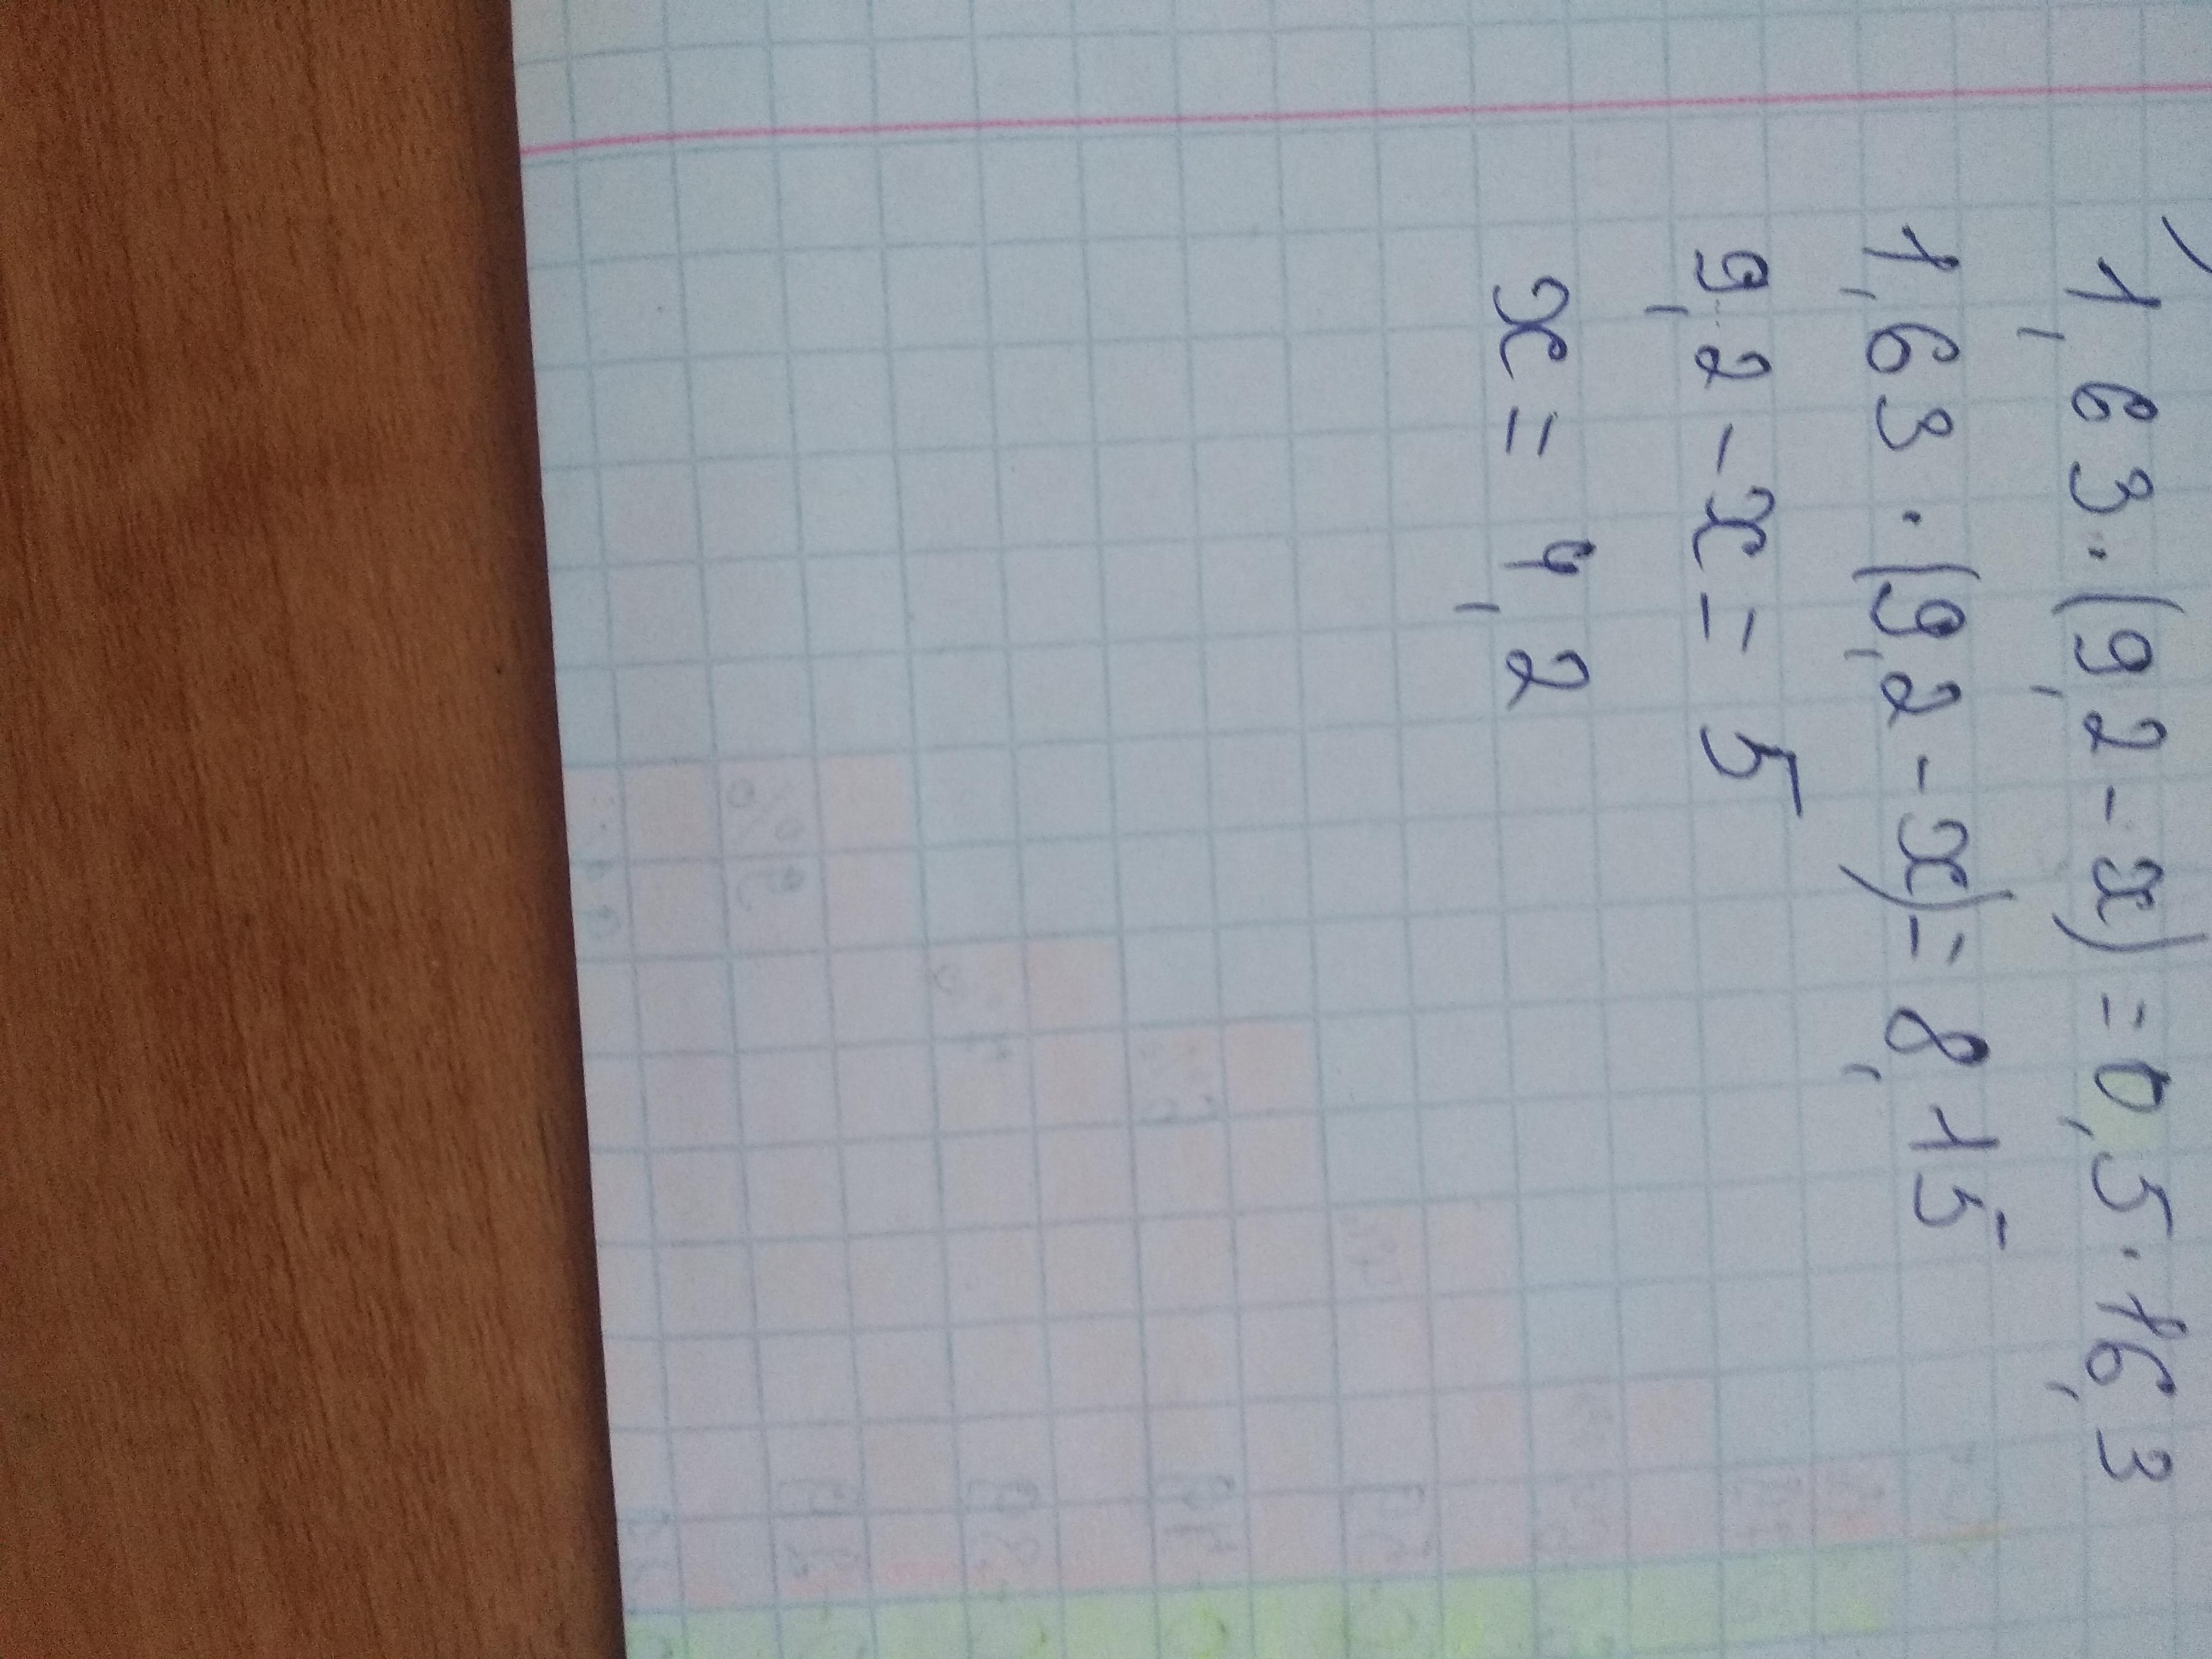 1,63·(9,2-x)=0,5·16,3
1,63·(9,2-x)=8,15
9,2-x=5
x=4,2